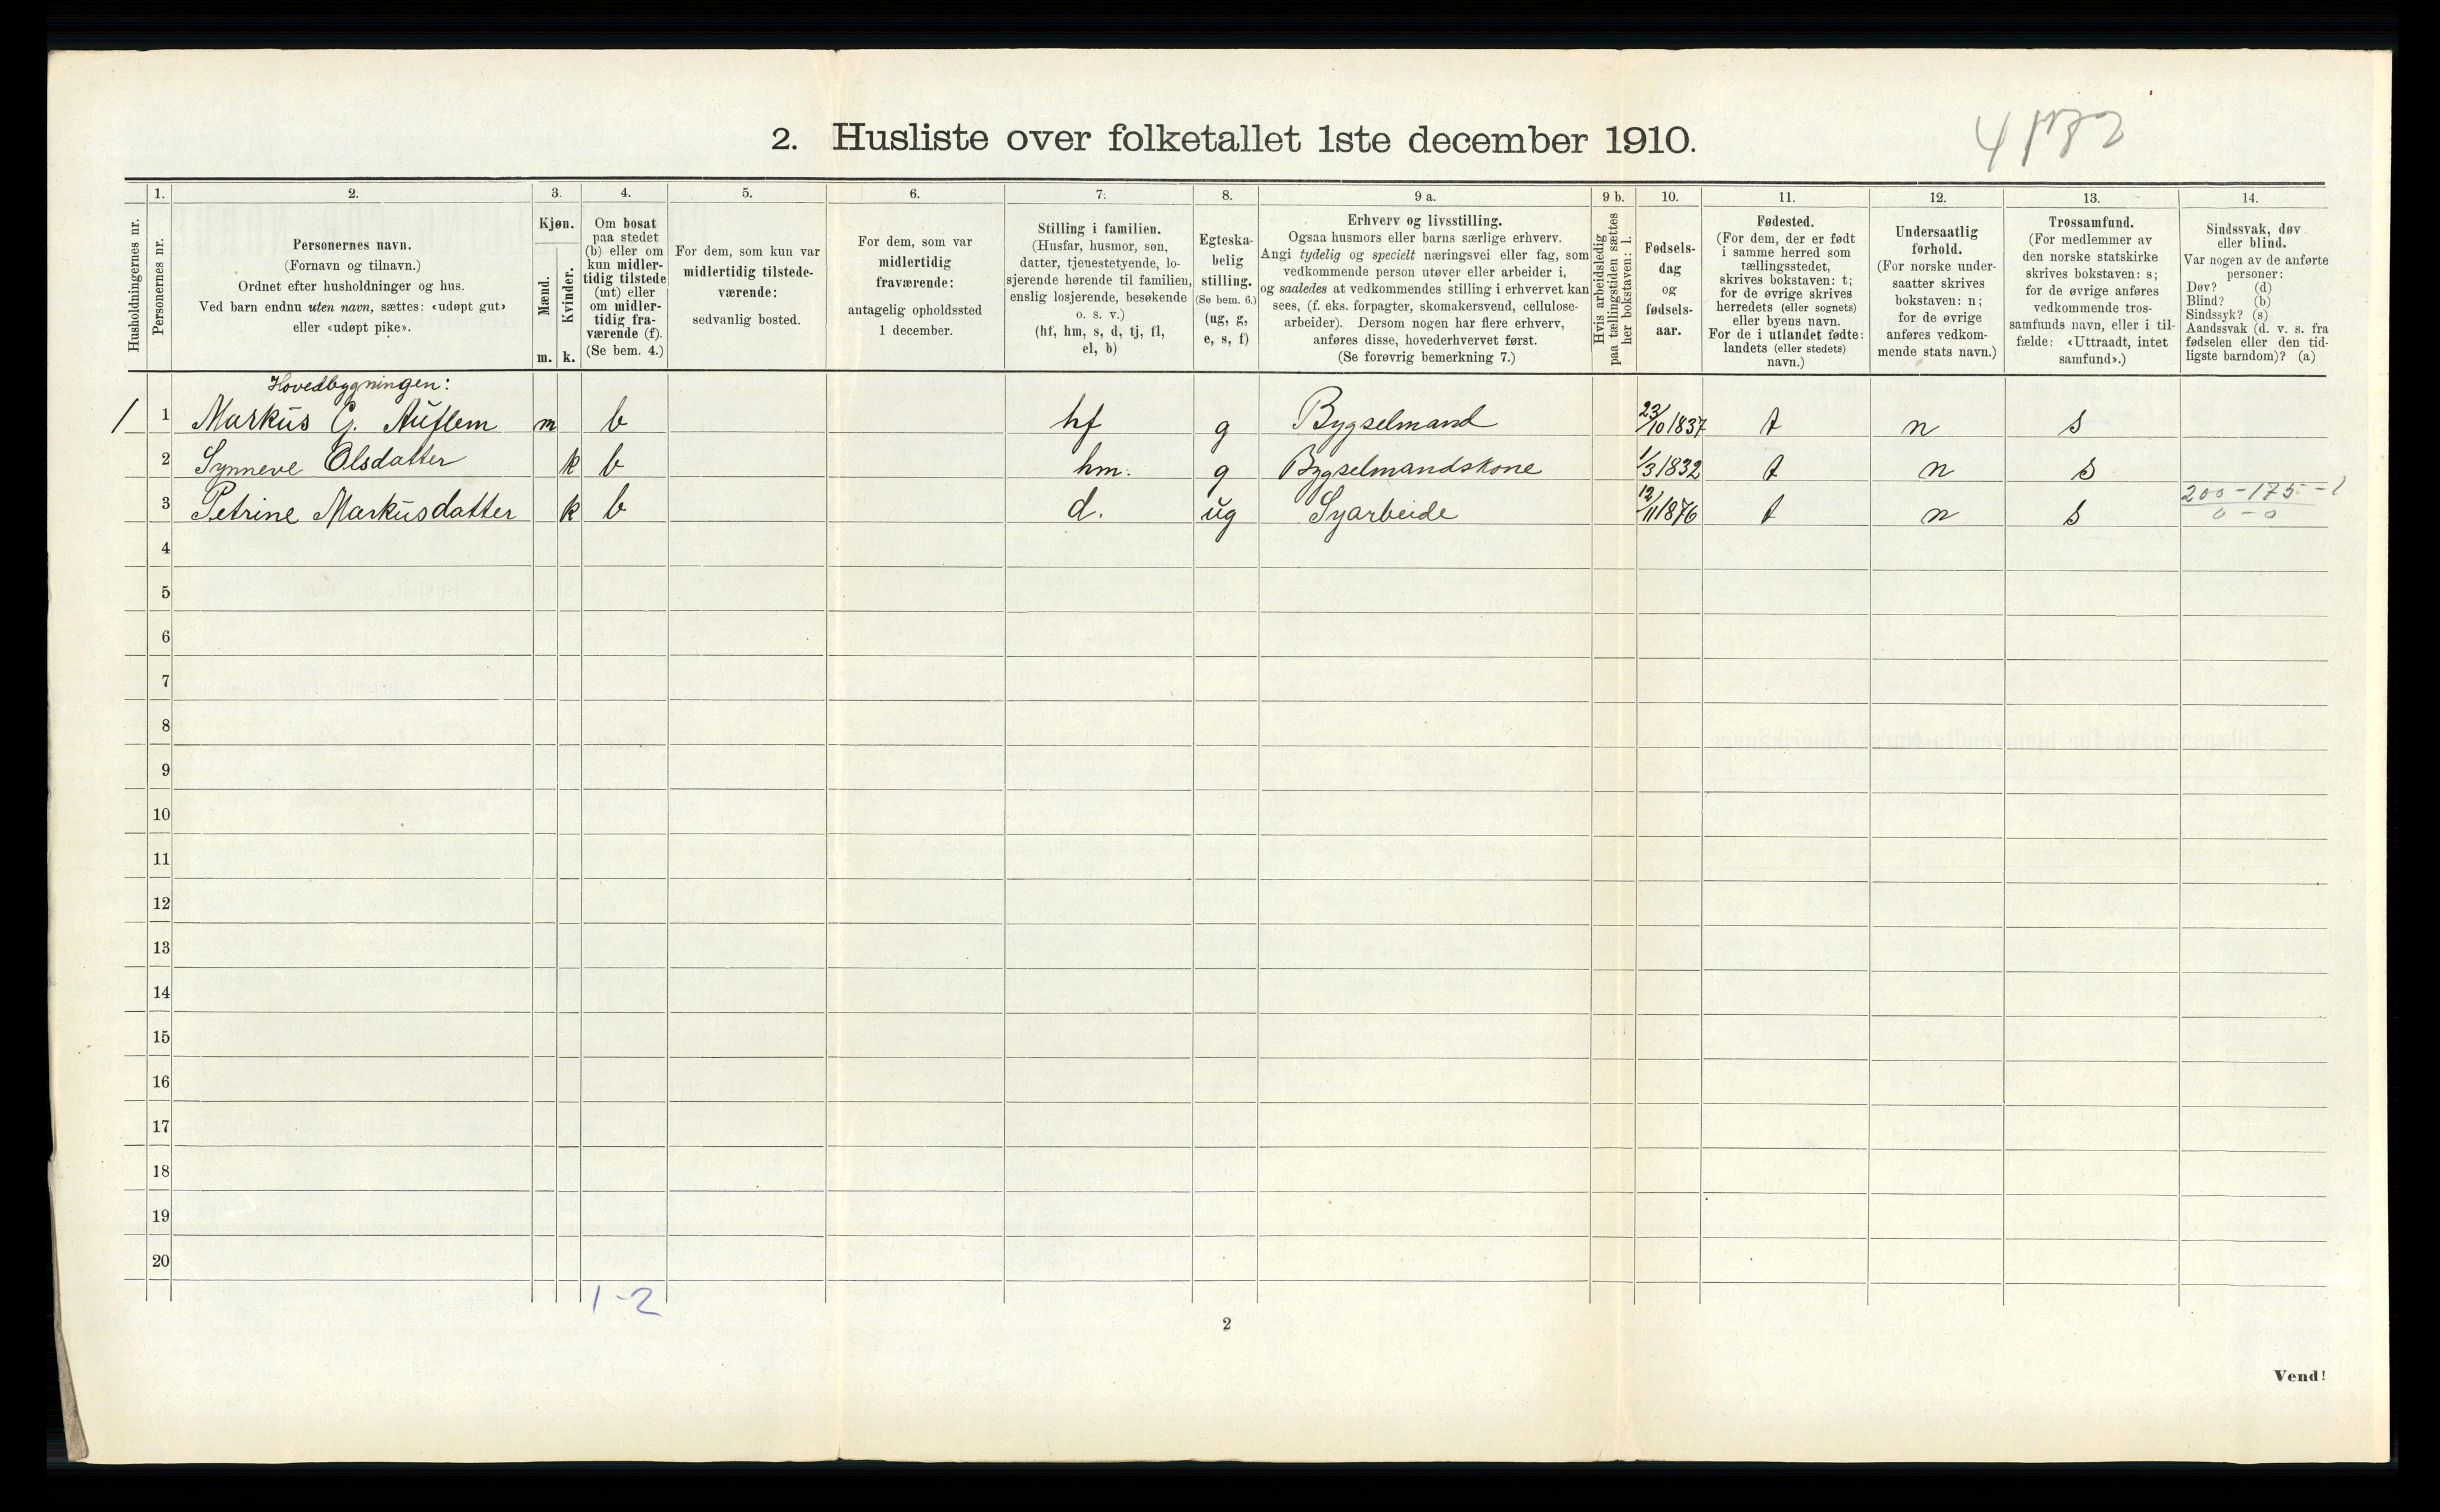 2. Husliste over folketallet 1ste december 1910.
Husholdningernes nr.
1.
Personernes nr.
2.
Personernes navn.
(Fornavn og tilnavn.)
Ordnet efter husholdninger og hus.
Ved barn endnu uten navn, sættes: «udøpt gut»
eller «udøpt pike».
3.
Kjøn.
Mænd.
m.
Kvinder.
k.
4.
Om bosat
paa stedet
(b) eller om
kun midler-
tidig tilstede
(mt) eller
om midler-
tidig fra-
værende (f).
(Se bem. 4.)
5.
For dem, som kun var
midlertidig tilstede-
værende:
sedvanlig bosted.
6.
For dem, som var
midlertidig
fraværende:
antagelig opholdssted
1 december.
7.
Stilling i familien.
(Husfar, husmor, søn,
datter, tjenestetyende, lo-
sjerende hørende til familien,
enslig losjerende, besøkende
o. s. v.)
(hf, hm, s, d, tj, fl,
el, b)
8.
Egteska-
belig
stilling.
(Se bem. 6.)
(ug, g,
e, s, f)
9 a.
Erhverv og livsstilling.
Ogsaa husmors eller barns særlige erhverv.
Angi tydelig og specielt næringsvei eller fag, som
vedkommende person utøver eller arbeider i,
og saaledes at vedkommendes stilling i erhvervet kan
sees, (f. eks. forpagter, skomakersvend, cellulose-
arbeider). Dersom nogen har flere erhverv,
anføres disse, hovederhvervet først.
(Se forøvrig bemerkning 7.)
9 b.
Hvis arbeidsledig
paa tællingstiden sættes
her bokstaven: l.
10.
Fødsels-
dag
og
fødsels-
aar.
11.
Fødested.
(For dem, der er født
i samme herred som
tællingsstedet,
skrives bokstaven: t;
for de øvrige skrives
herredets (eller sognets)
eller byens navn.
For de i utlandet fødte:
landets (eller stedets)
navn.)
12.
Undersaatlig
forhold.
(For norske under-
saatter skrives
bokstaven: n;
for de øvrige
anføres vedkom-
mende stats navn.)
13.
Trossamfund.
(For medlemmer av
den norske statskirke
skrives bokstaven: s;
for de øvrige anføres
vedkommende tros-
samfunds navn, eller i til-
fælde: «Uttraadt, intet
samfund».)
14.
Sindssvak, døv
eller blind.
Var nogen av de anførte
personer:
Døv? (d)
Blind? (b)
Sindssyk? (s)
Aandssvak (d. v. s. fra
fødselen eller den tid-
ligste barndom)? (a)
Hovedbygningen:
1 1 Markus G. Auflem m b hf g Bygselmand 23/10 1837 t n s
2 Synneve Olsdatter k b hm. g Bygselmandskone 1/3 1832 t n s
3 Petrine Markusdatter k b d. ug Syarbeide 12/11 1876 t n s
200 - 175 - 1
0 - 0
4
5
6
7
8
9
10
11
12
13
14
15
16
17
18
19
20
1-2
2
Vend!